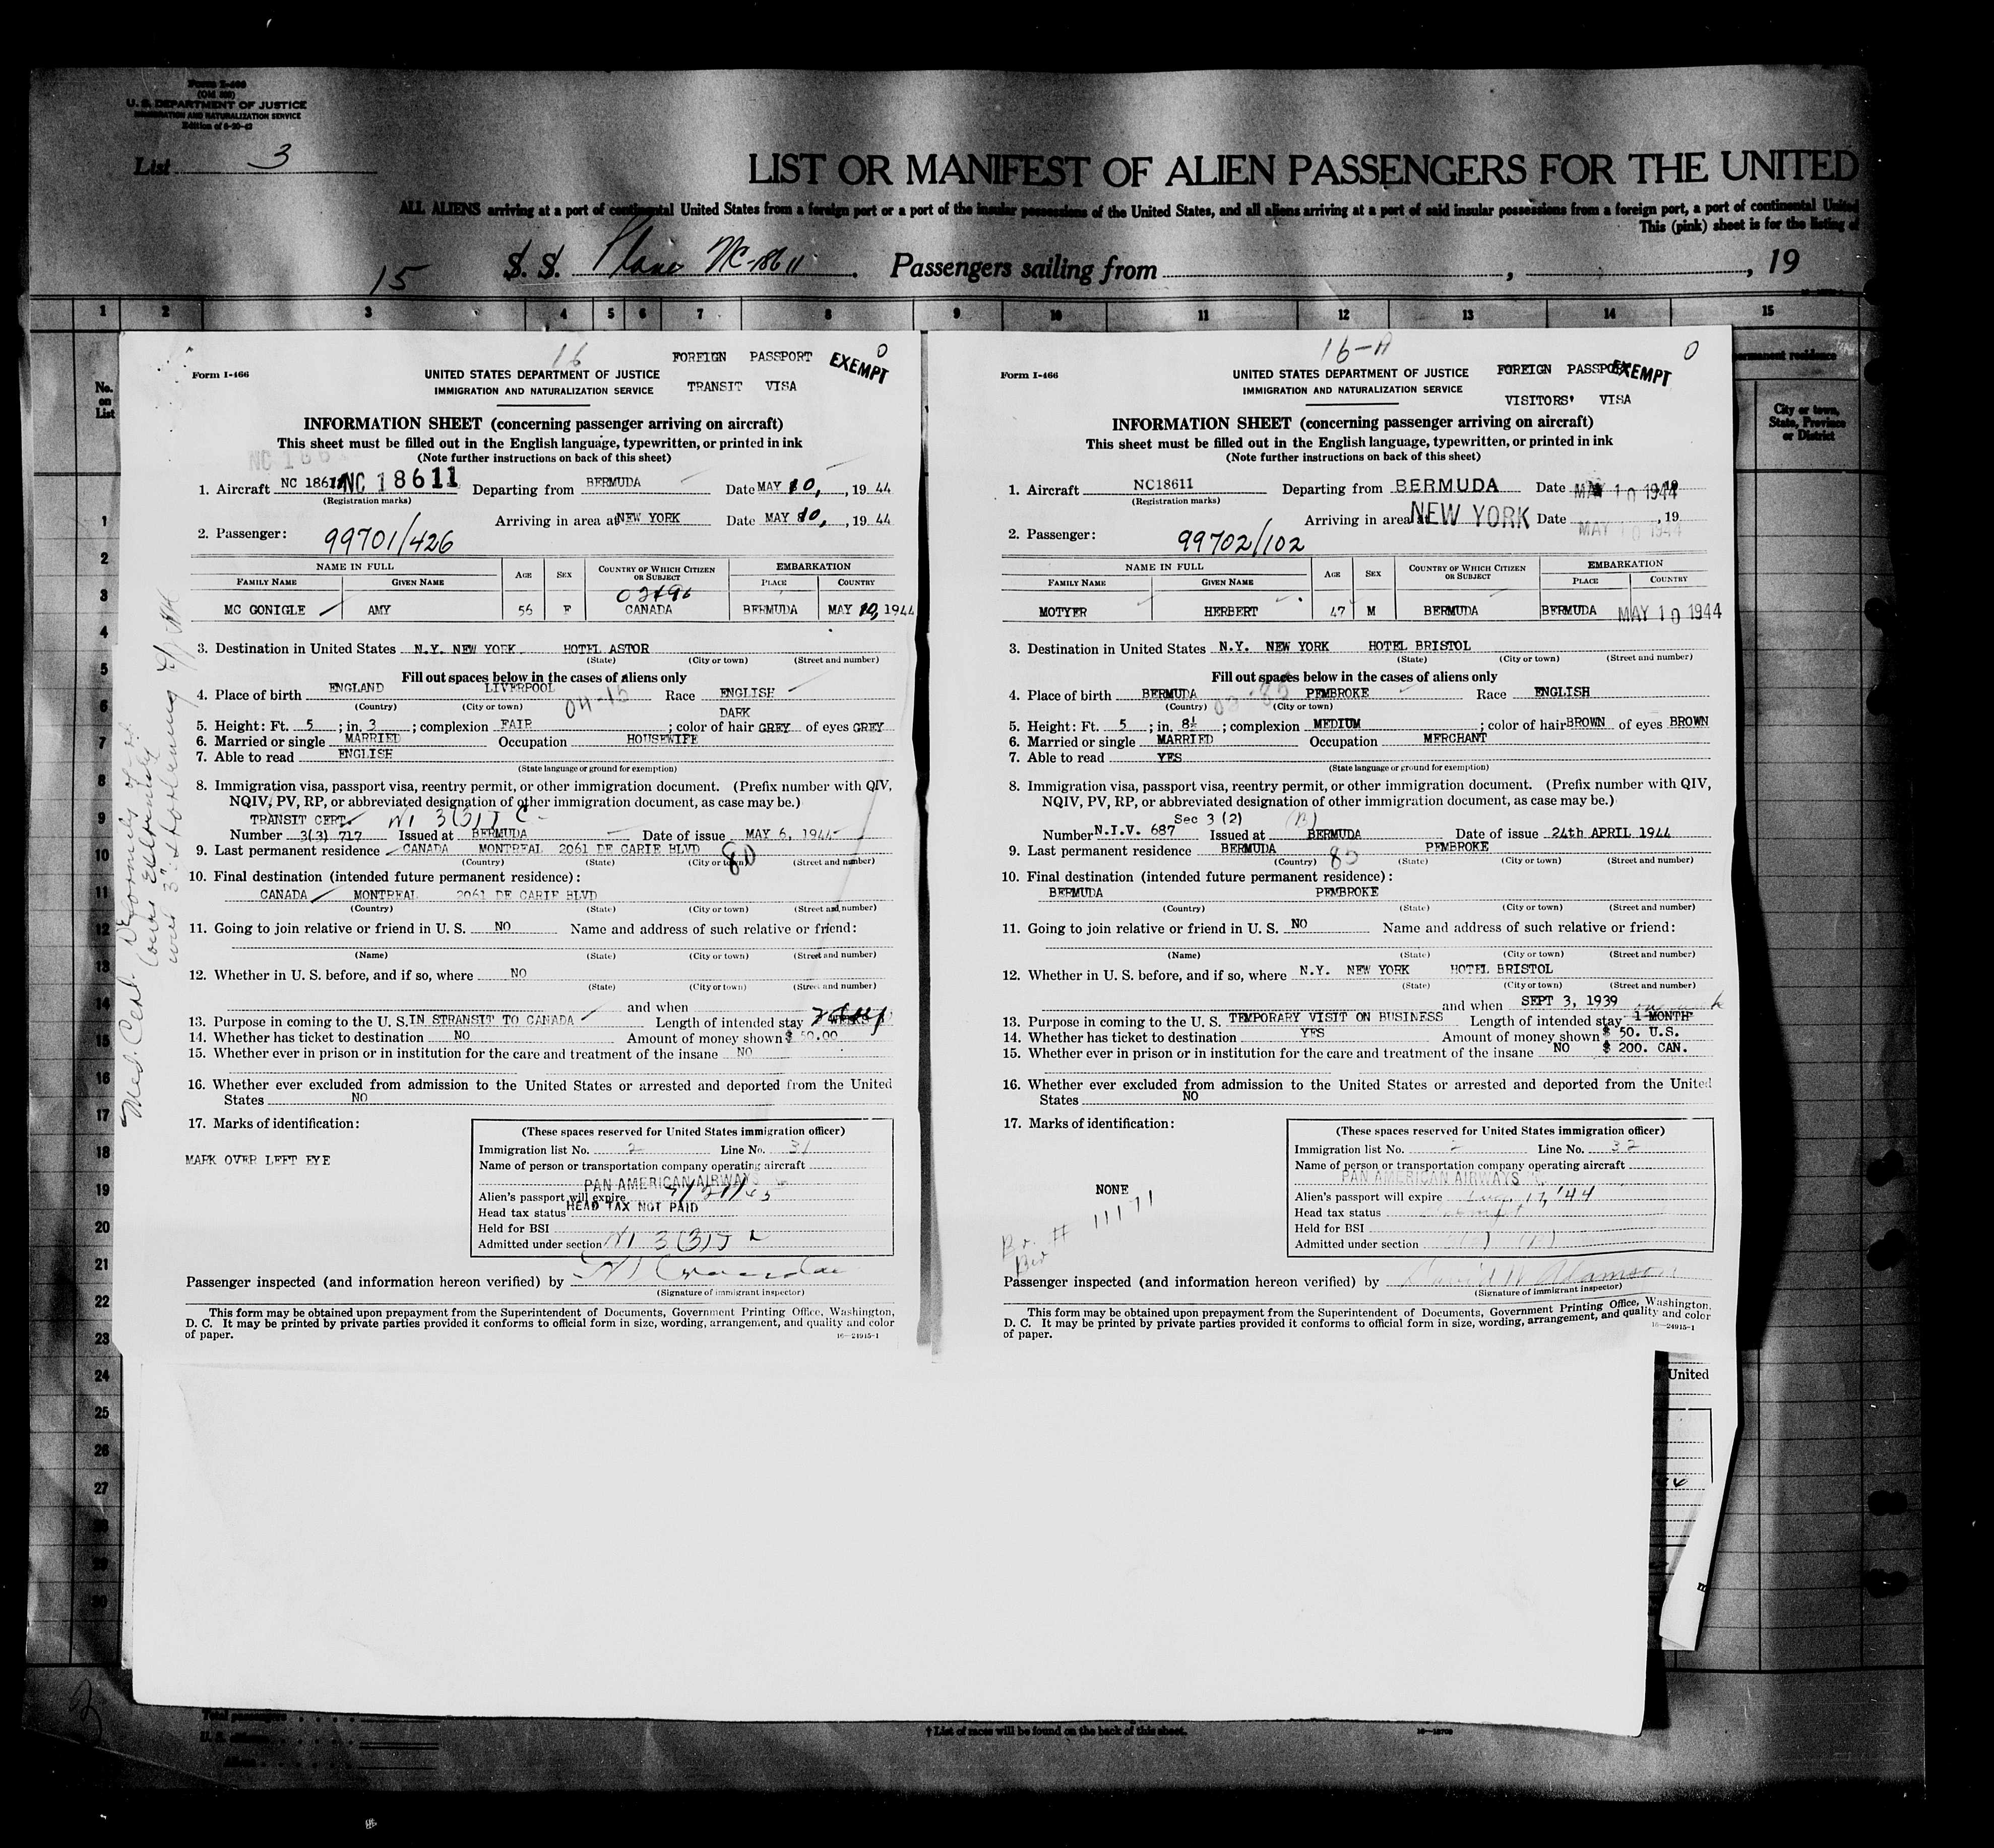 Form I-466
(Old 500)
U. S. DEPARTMENT OF JUSTICE
IMMIGRATION AND NATURALIZATION SERVICE
List 3
LIST OR MANIFEST OF ALIEN PASSENGERS FOR THE UNITED
ALL ALIENS arriving at a port of continental United States from a foreign port or a port of the insular possessions of the United States, and all aliens arriving at a port of said insular possessions from a foreign port, a port of continental United
This (pink) sheet is for the listing of
15 S. S. Plane NC-18611. Passengers sailing from , , 19
1 2 3 4 5 6 7 8 9 10 11 12 13 14 15
No. on List
permanent residence
City or town, State, Province or District
16 FOREIGN PASSPORT EXEMPT 0
Form I-466 UNITED STATES DEPARTMENT OF JUSTICE TRANSIT VISA
IMMIGRATION AND NATURALIZATION SERVICE
INFORMATION SHEET (concerning passenger arriving on aircraft)
This sheet must be filled out in the English language, typewritten, or printed in ink
(Note further instructions on back of this sheet)
1. Aircraft NC 18611 NC 18611 Departing from BERMUDA Date MAY 10, , 19 44
(Registration marks)
Arriving in area at NEW YORK Date MAY 10, , 19 44
2. Passenger: 99701/426
NAME IN FULL AGE SEX COUNTRY OF WHICH CITIZEN OR SUBJECT EMBARKATION
FAMILY NAME GIVEN NAME PLACE COUNTRY
MC GONIGLE AMY 56 F CANADA BERMUDA MAY 10, 1944
3. Destination in United States N.Y. NEW YORK HOTEL ASTOR
(State) (City or town) (Street and number)
Fill out spaces below in the cases of aliens only
4. Place of birth ENGLAND LIVERPOOL Race ENGLISH
(Country) (City or town) 04-15
DARK
5. Height: Ft. 5 ; in. 3 ; complexion FAIR ; color of hair GREY of eyes GREY
6. Married or single MARRIED Occupation HOUSEWIFE
7. Able to read ENGLISH
(State language or ground for exemption)
8. Immigration visa, passport visa, reentry permit, or other immigration document. (Prefix number with QIV,
NQIV, PV, RP, or abbreviated designation of other immigration document, as case may be.)
TRANSIT CERT.
Number 3(3) 717 Issued at BERMUDA Date of issue MAY 6, 1944
9. Last permanent residence CANADA MONTREAL 2061 DE CARIE BLVD 80
(Country) (State) (City or town) (Street and number)
10. Final destination (intended future permanent residence):
CANADA MONTREAL 2061 DE CARIE BLVD
(Country) (State) (City or town) (Street and number)
11. Going to join relative or friend in U. S. NO Name and address of such relative or friend:
(Name) (State) (City or town) (Street and number)
12. Whether in U. S. before, and if so, where NO
(State) (City or town) (Street and number)
and when
13. Purpose in coming to the U. S. IN STRANSIT TO CANADA Length of intended stay
14. Whether has ticket to destination NO Amount of money shown $ 50.00
15. Whether ever in prison or in institution for the care and treatment of the insane NO
16. Whether ever excluded from admission to the United States or arrested and deported from the United
States NO
17. Marks of identification:
MARK OVER LEFT EYE
(These spaces reserved for United States immigration officer)
Immigration list No. 2 Line No. 31
Name of person or transportation company operating aircraft
PAN AMERICAN AIRWAYS
Alien's passport will expire
Head tax status HEAD TAX NOT PAID
Held for BSI
Admitted under section
Passenger inspected (and information hereon verified) by
(Signature of immigrant inspector)
This form may be obtained upon prepayment from the Superintendent of Documents, Government Printing Office, Washington,
D. C. It may be printed by private parties provided it conforms to official form in size, wording, arrangement, and quality and color
of paper. 16—24915-1
16-A FOREIGN PASSPORT EXEMPT 0
Form I-466 UNITED STATES DEPARTMENT OF JUSTICE VISITORS' VISA
IMMIGRATION AND NATURALIZATION SERVICE
INFORMATION SHEET (concerning passenger arriving on aircraft)
This sheet must be filled out in the English language, typewritten, or printed in ink
(Note further instructions on back of this sheet)
1. Aircraft NC18611 Departing from BERMUDA Date MAY 10 1944
(Registration marks)
Arriving in area at NEW YORK Date MAY 10 1944 , 19
2. Passenger: 99702/102
NAME IN FULL AGE SEX COUNTRY OF WHICH CITIZEN OR SUBJECT EMBARKATION
FAMILY NAME GIVEN NAME PLACE COUNTRY
MOTYER HERBERT 47 M BERMUDA BERMUDA MAY 10 1944
3. Destination in United States N.Y. NEW YORK HOTEL BRISTOL
(State) (City or town) (Street and number)
Fill out spaces below in the cases of aliens only
4. Place of birth BERMUDA PEMBROKE Race ENGLISH
(Country) (City or town)
5. Height: Ft. 5 ; in. 8½ ; complexion MEDIUM ; color of hair BROWN of eyes BROWN
6. Married or single MARRIED Occupation MERCHANT
7. Able to read YES
(State language or ground for exemption)
8. Immigration visa, passport visa, reentry permit, or other immigration document. (Prefix number with QIV,
NQIV, PV, RP, or abbreviated designation of other immigration document, as case may be.)
Sec 3 (2) (B)
Number N.I.V. 687 Issued at BERMUDA Date of issue 24th APRIL 1944
9. Last permanent residence BERMUDA PEMBROKE
(Country) 85 (State) (City or town) (Street and number)
10. Final destination (intended future permanent residence):
BERMUDA PEMBROKE
(Country) (State) (City or town) (Street and number)
11. Going to join relative or friend in U. S. NO Name and address of such relative or friend:
(Name) (State) (City or town) (Street and number)
12. Whether in U. S. before, and if so, where N.Y. NEW YORK HOTEL BRISTOL
(State) (City or town) (Street and number)
and when SEPT 3, 1939 one week
13. Purpose in coming to the U. S. TEMPORARY VISIT ON BUSINESS Length of intended stay 1 MONTH
14. Whether has ticket to destination YES Amount of money shown $ 50. U.S.
15. Whether ever in prison or in institution for the care and treatment of the insane NO $ 200. CAN.
16. Whether ever excluded from admission to the United States or arrested and deported from the United
States NO
17. Marks of identification:
NONE
11171
(These spaces reserved for United States immigration officer)
Immigration list No. 2 Line No. 32
Name of person or transportation company operating aircraft
PAN AMERICAN AIRWAYS
Alien's passport will expire Aug 17, '44
Head tax status Exempt
Held for BSI
Admitted under section
Passenger inspected (and information hereon verified) by David W Adamson
(Signature of immigrant inspector)
This form may be obtained upon prepayment from the Superintendent of Documents, Government Printing Office, Washington,
D. C. It may be printed by private parties provided it conforms to official form in size, wording, arrangement, and quality and color
of paper. 16—24915-1
United
1
2
3
4
5
6
7
8
9
10
11
12
13
14
15
16
17
18
19
20
21
22
23
24
25
26
27
28
29
30
3
Total passengers
U. S. citizens
Aliens
† List of races will be found on the back of this sheet.